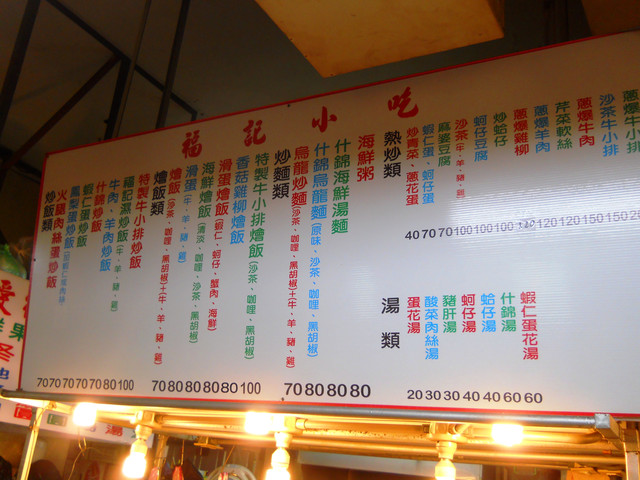 福記小吃
炒飯類
火腿肉絲蛋炒飯
鳳梨蛋炒飯
蝦仁蛋炒飯
什錦炒飯
牛肉、羊肉炒飯
福記滷炒飯(牛、羊、豬、雞)
特製牛小排炒飯
70 70 70 70 70 80 100
燴飯類
燴飯(沙茶、咖哩、黑胡椒)(牛、羊、豬、雞)
滑蛋(牛、羊、豬、雞)
海鮮燴飯(清淡、咖哩、沙茶、黑胡椒)
滑蛋燴飯(蝦仁、蚵仔、蟹肉、海鮮)
香菇雞柳燴飯
特製牛小排燴飯(沙茶、咖哩、黑胡椒)
70 80 80 80 80 80 100
炒麵類
烏龍炒麵(沙茶、咖哩、黑胡椒)(牛、羊、豬、雞)
什錦烏龍麵(原味、沙茶、咖哩、黑胡椒)
什錦海鮮湯麵
海鮮粥
70 80 80 80
熱炒類
炒青菜、蔥花蛋
蝦仁蛋、蚵仔蛋
麻婆豆腐
沙茶(牛、羊、豬、雞)
蚵仔豆腐
炒蛤仔
蔥爆雞柳
蔥爆羊肉
芹菜軟絲
蔥爆牛肉
沙茶牛小排
蔥爆牛小排
40 70 70 100 100 100 120 120 120 150 150
湯類
蛋花湯
酸菜肉絲湯
豬肝湯
蚵仔湯
蛤仔湯
什錦湯
蝦仁蛋花湯
20 30 30 40 40 60 60